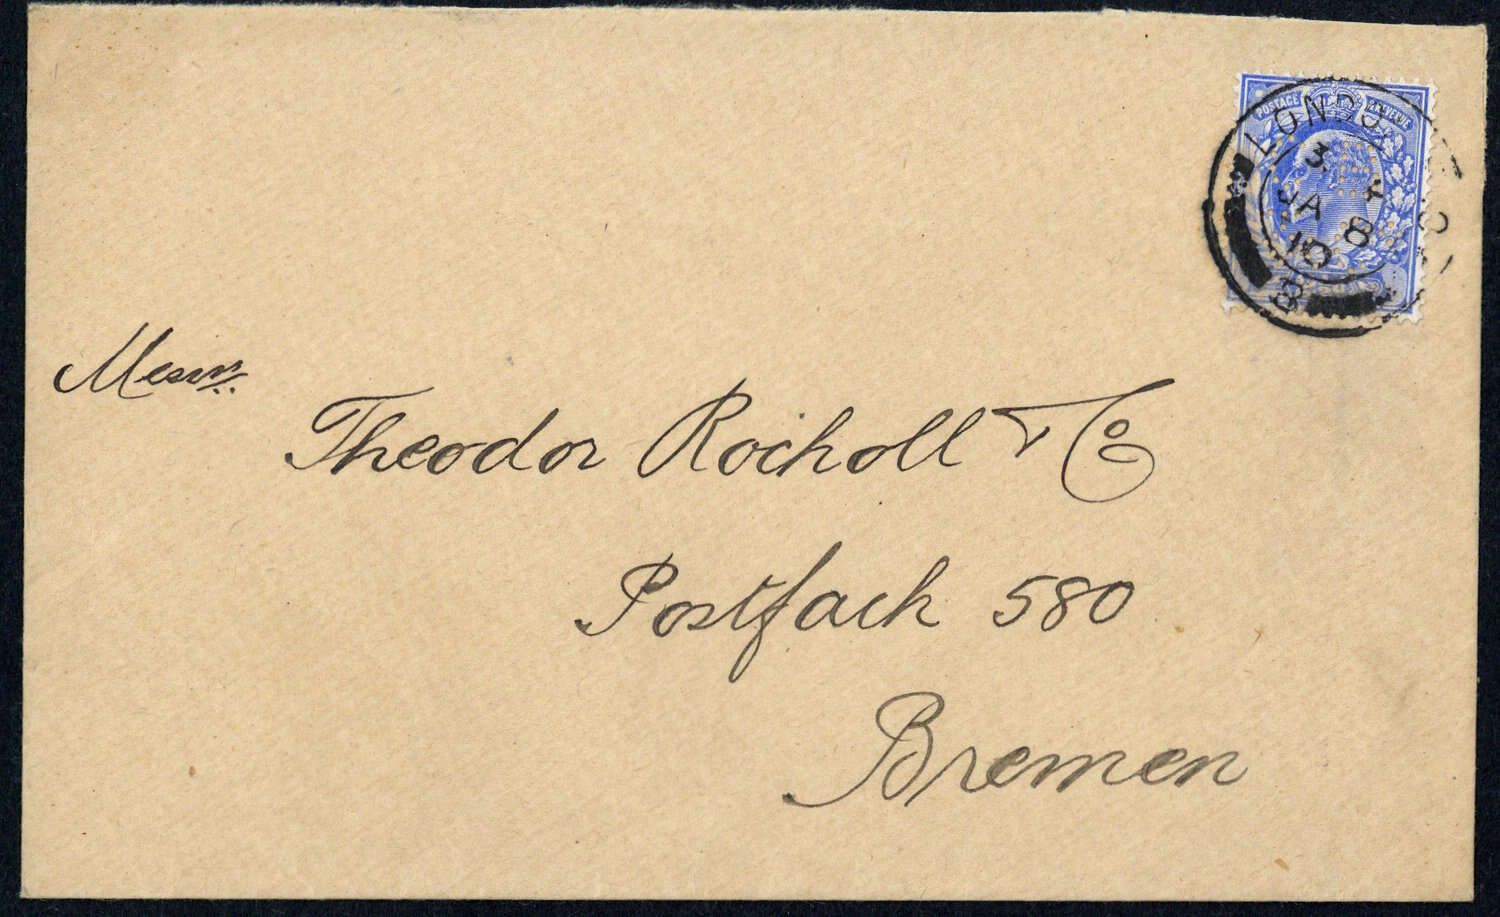 POSTAGE REVENUE
LONDO
3
JA 8
10
Messrs.
Theodor Rocholl & Co
Postfach 580
Bremen